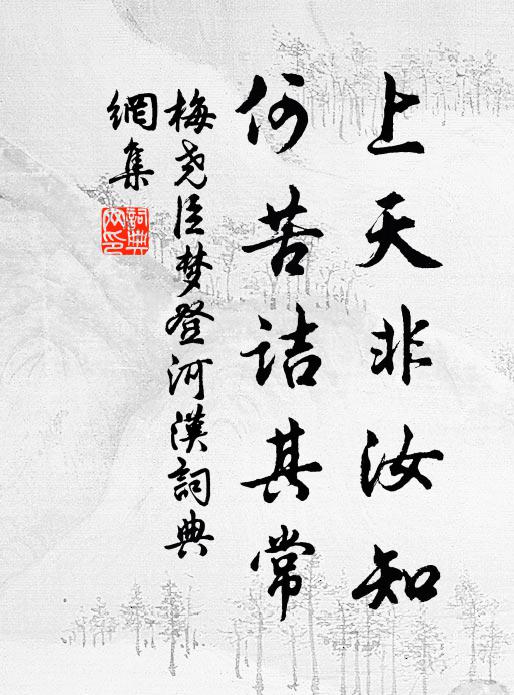 上天非汝知
何苦诘其常
梅尧臣梦登河漢詞典
網集
詞典
网印